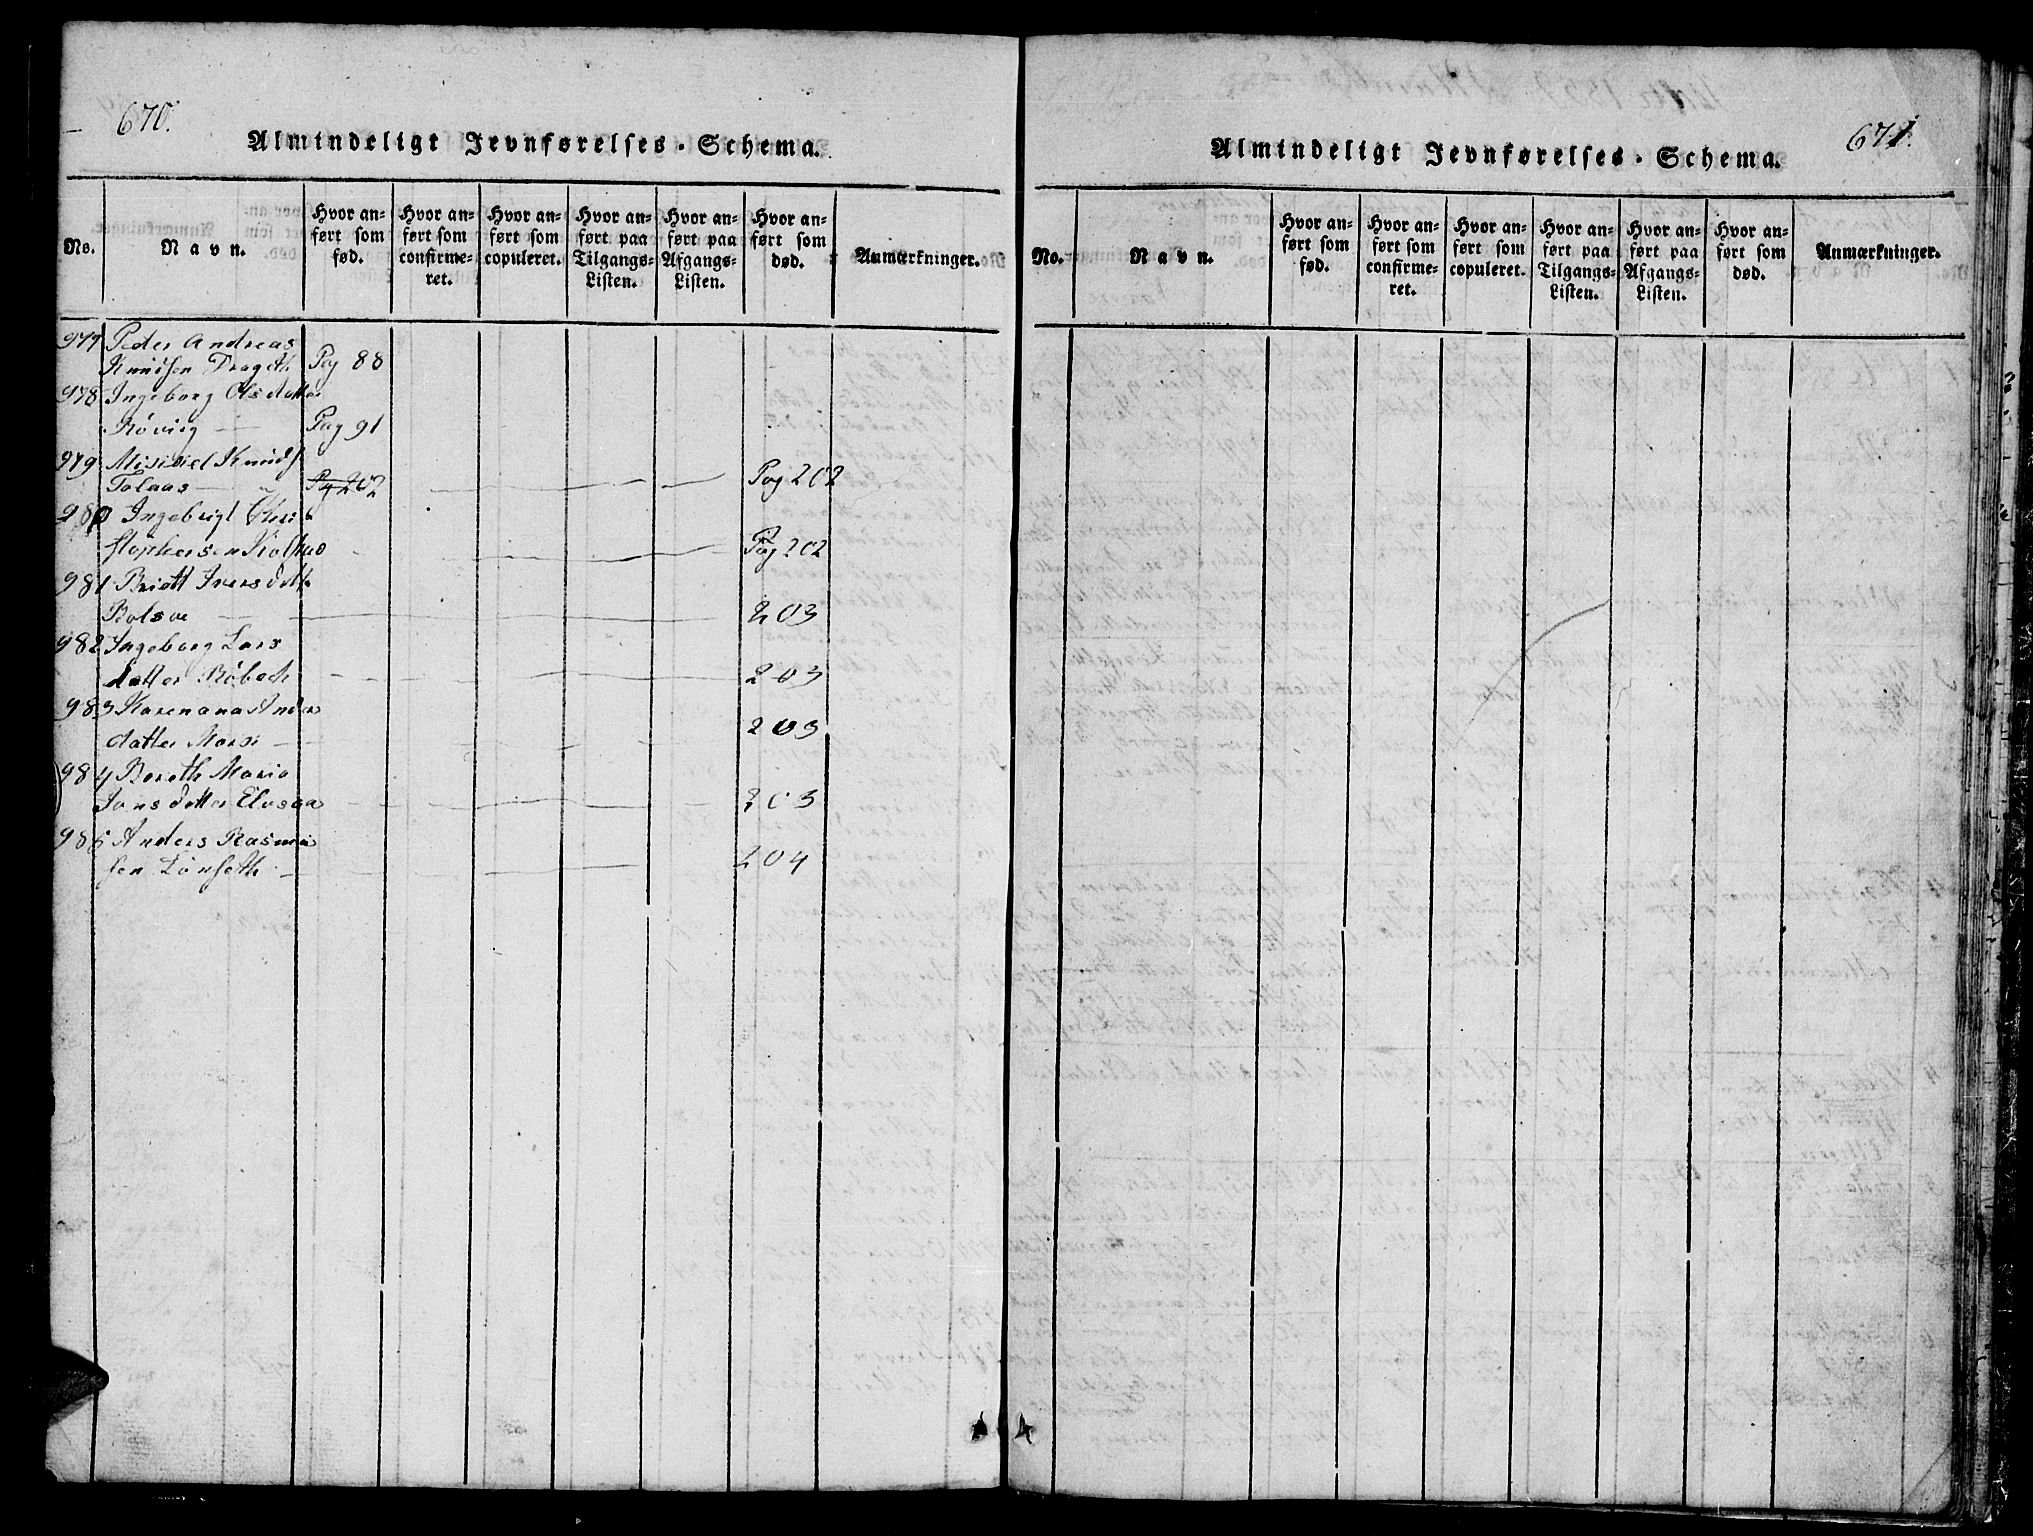 670.
Almindeligt Jevnførelses-Schema.
No.
Navn.
Hvor anført som fød.
Hvor anført som confirmeret.
Hvor anført som copuleret.
Hvor anført paa Tilgangs-Listen.
Hvor anført paa Afgangs-Listen.
Hvor anført som død.
Anmærkninger.
977 Peder Andreas
Knudsen Frageth Pag 88
978 Ingeborg Olsdatter
Røvig Pag 91
979 Knuds
Tolaas Pag 202 Pag 202
980 Ingebrigt Chri
stophersen Pag 202
981 Briett Iversdatt
Bolsøe 203
982 Ingeborg Lars
datter Røbech 203
983 Karenana Anders
datter 203
984 Bereth Maria
Jonsdatter Elvsaa 203
985 Anders Rasmu
sen Lønseth 204
671.
Almindeligt Jevnførelses-Schema.
No.
Navn.
Hvor anført som fød.
Hvor anført som confirmeret.
Hvor anført som copuleret.
Hvor anført paa Tilgangs-Listen.
Hvor anført paa Afgangs-Listen.
Hvor anført som død.
Anmærkninger.